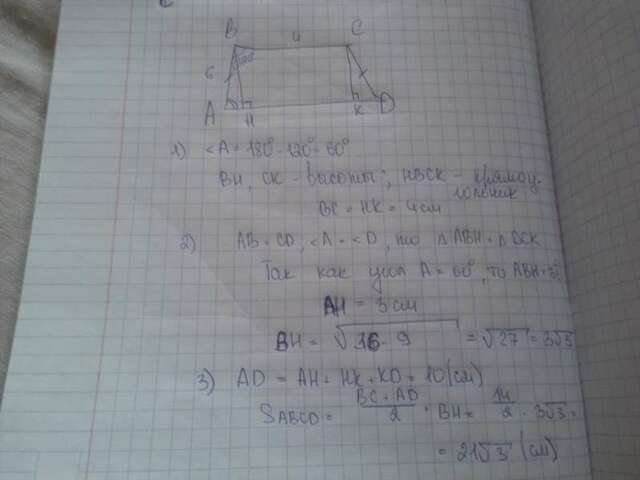 B 4 C
6 120°
A H K D
1) <A = 180° - 120° = 60°
BH, CK - высоты; HBCK - прямоу-
гольник
BC = HK = 4 см
2) AB = CD, <A = <D, то △ABH = △DCK
Так как угол A = 60°, то ABH = 30°
AH = 3 см
BH = √36 - 9 = √27 = 3√3
3) AD = AH + HK + KD = 10 (см)
SABCD = BC + AD / 2 · BH = 14 / 2 · 3√3 =
= 21√3 (см)